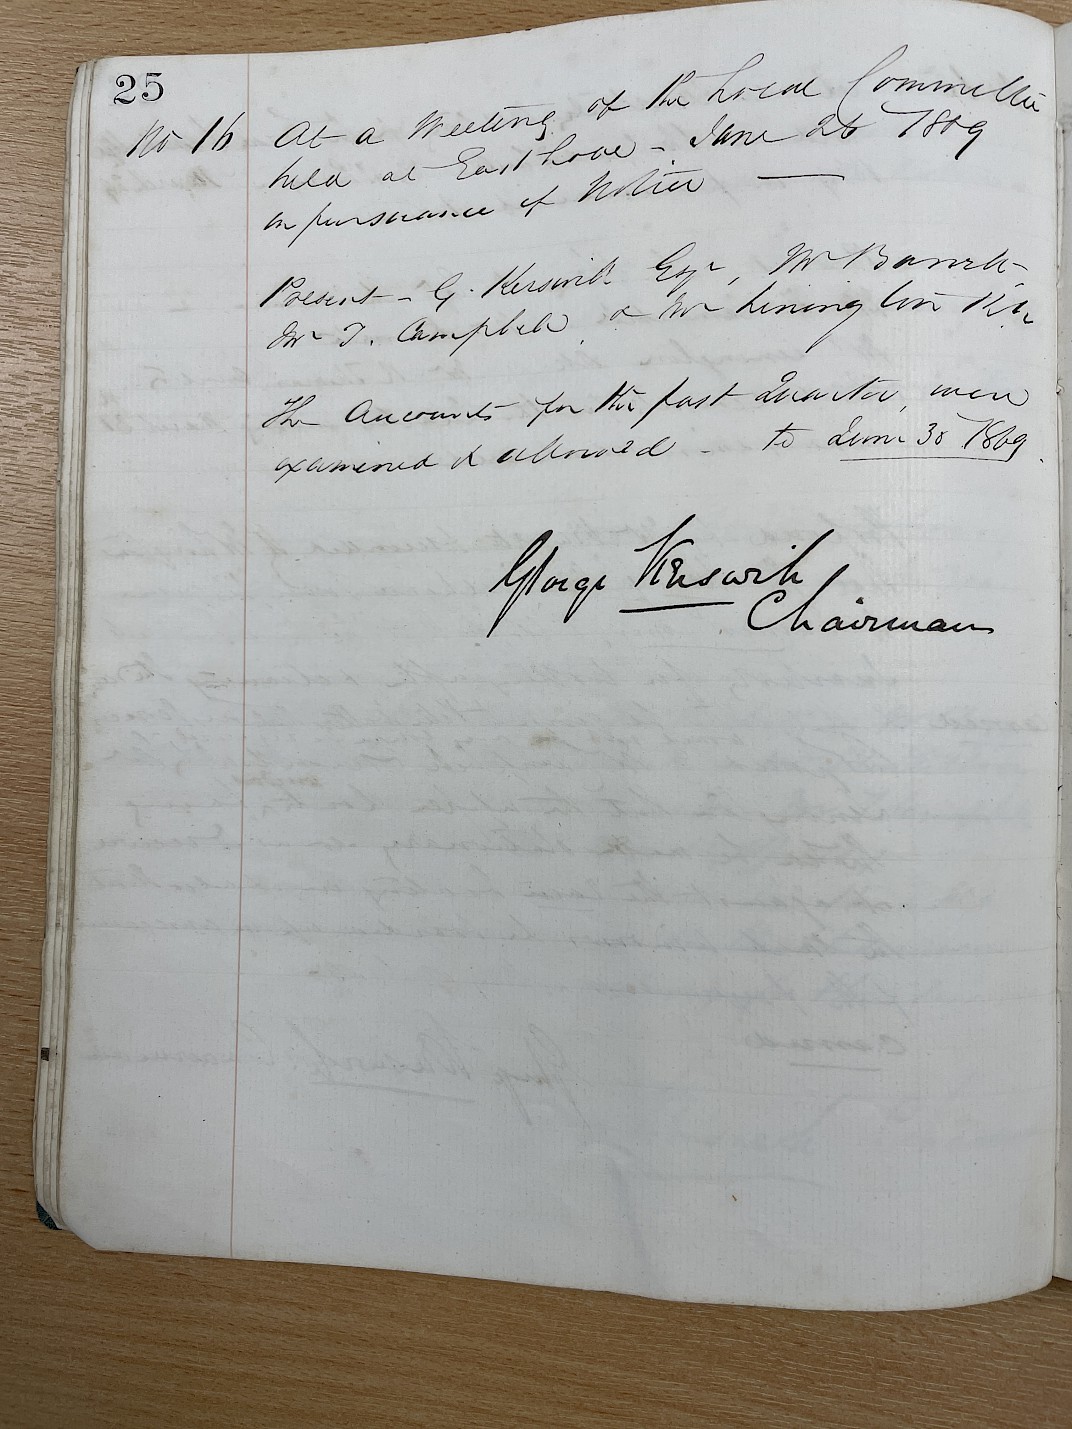 25
No 16 At a Meeting of the Local Committee
held at East Looe - June 26 1869
in pursuance of Notice —
Present - G. Kerswill Esqr, Mr Barrett
Mr T. Campbell & Mr Linington
The Accounts for the past Quarter, were
examined & allowed - to June 30 1869.
George Kerswill
Chairman